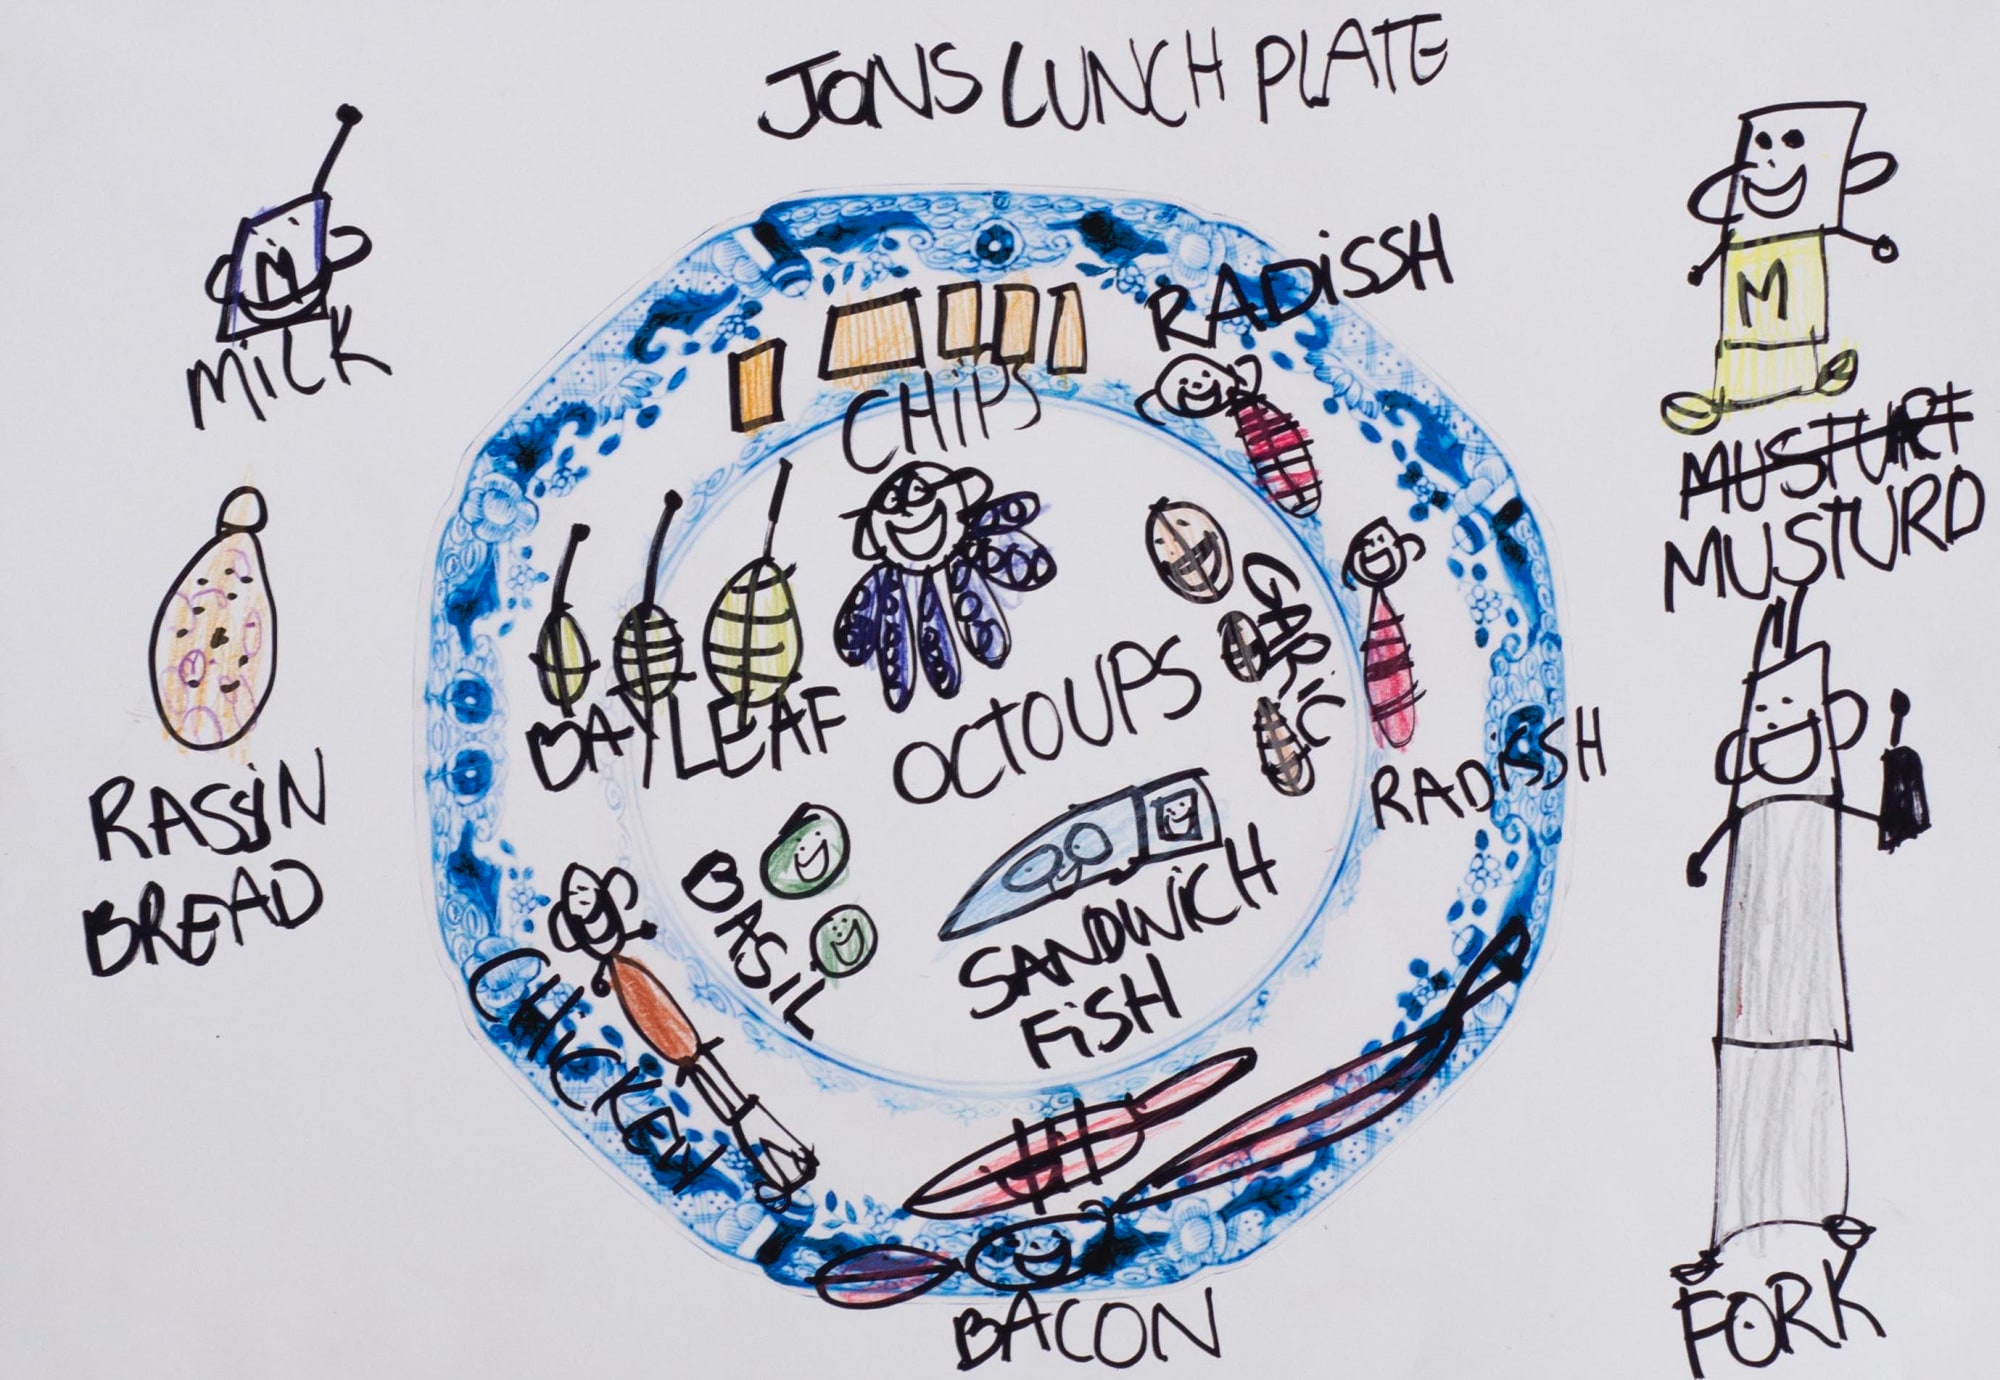 JONS LUNCH PLATE
MILK
RASSIN
BREAD
CHIPS
RADISSH
BAY LEAF
OCTOUPS
GARIC
RADISSH
BASIL
SANDWICH
FISH
CHICKEN
BACON
M
MUSTURT
MUSTURD
FORK
M